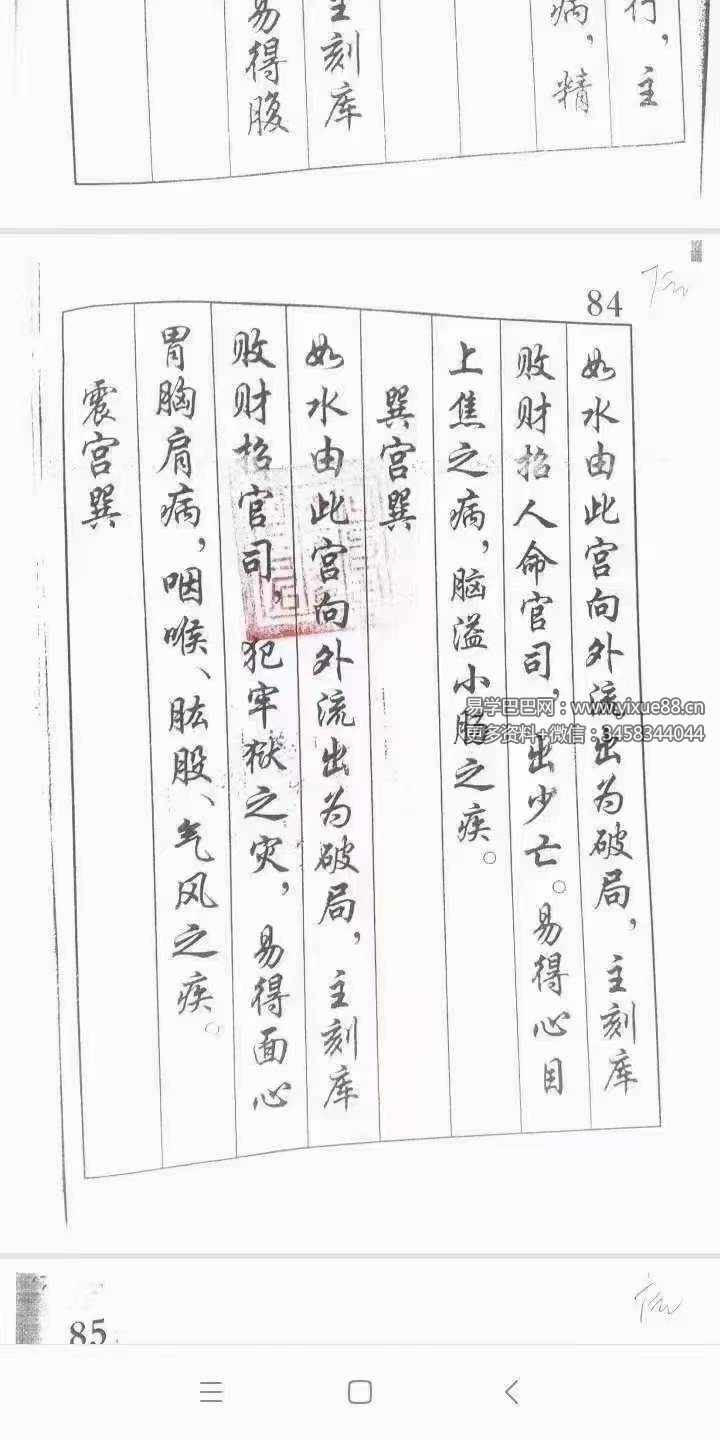 行，主
病，精
主刻库
易得腹
84
如水由此宫向外流出为破局，主刻库
败财招人命官司，出少亡。易得心目
上焦之病，脑溢小肠之疾。
巽宫巽
如水由此宫向外流出为破局，主刻库
败财招官司，犯牢狱之灾，易得面心
胃胸肩病，咽喉、肱股、气风之疾。
震宫巽
易学巴巴网：www.yixue88.cn
更多资料+微信：3458344044
85